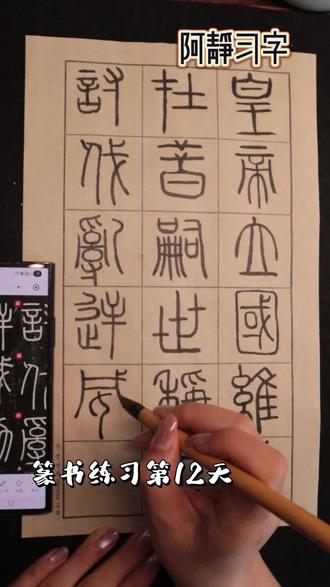 阿靜习字
皇帝立國維
在昔嗣世稱
討伐亂逆威
篆书练习第12天